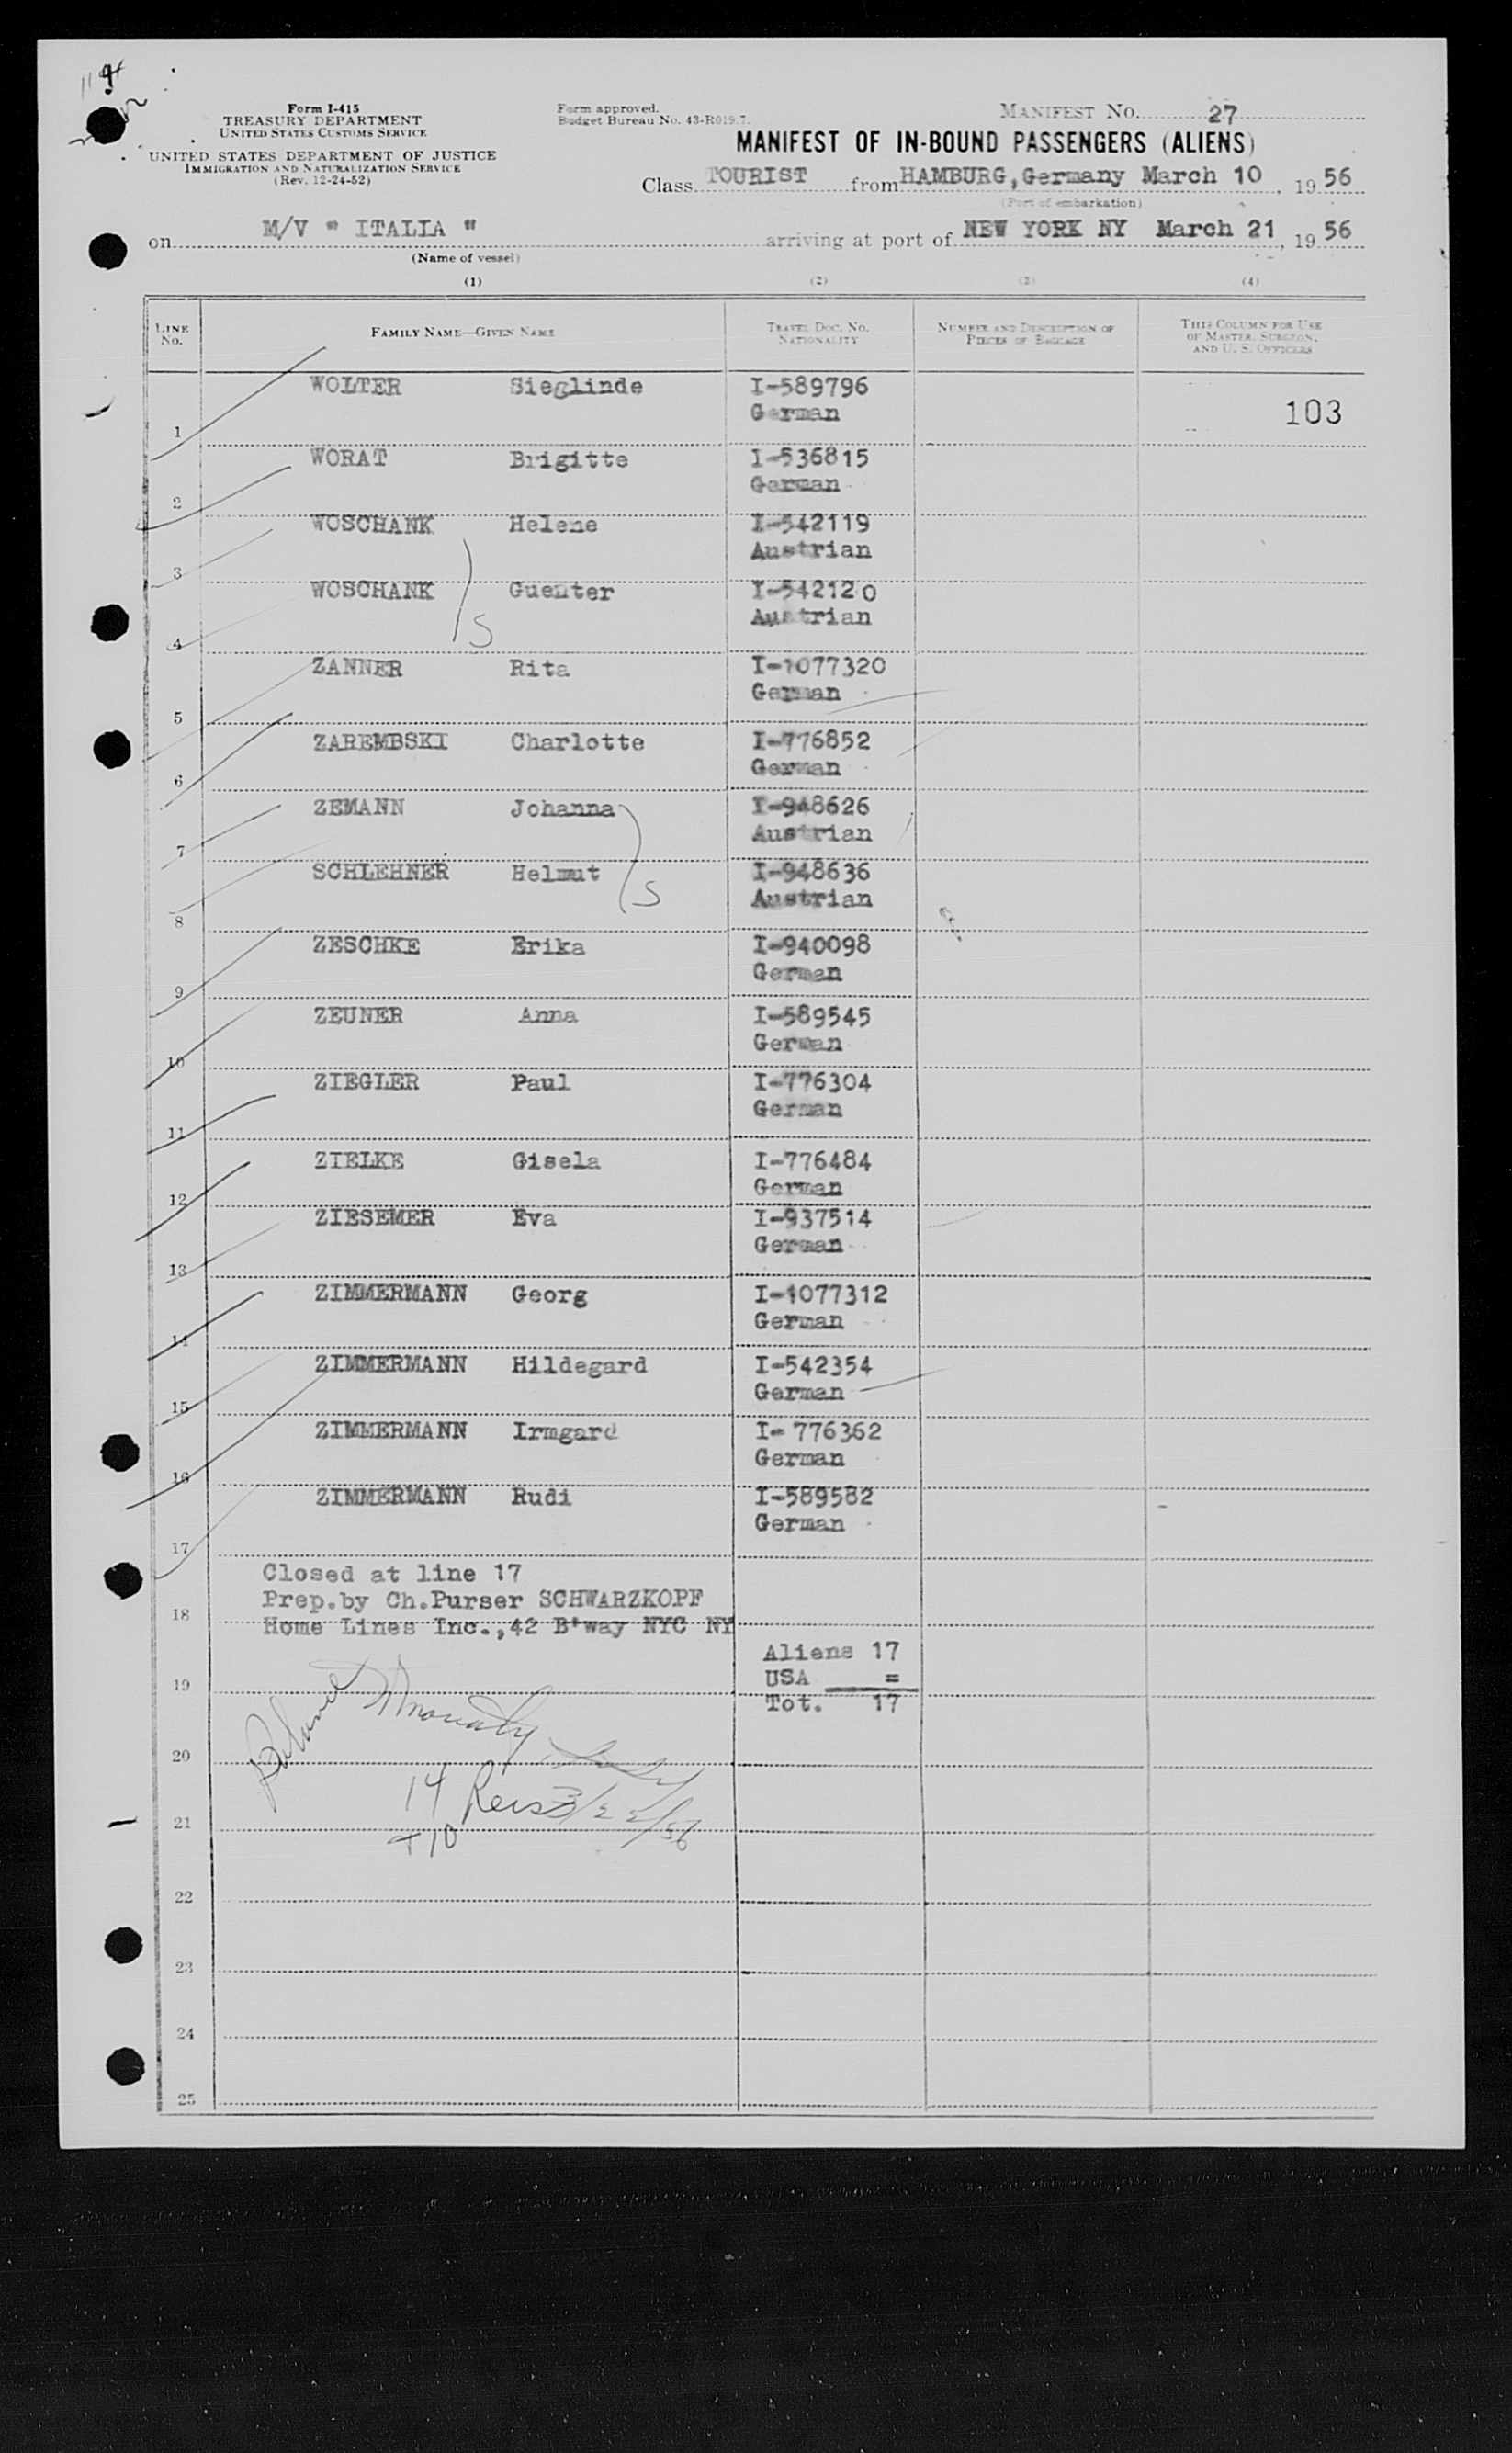 Form I-415
TREASURY DEPARTMENT
UNITED STATES CUSTOMS SERVICE
UNITED STATES DEPARTMENT OF JUSTICE
IMMIGRATION AND NATURALIZATION SERVICE
(Rev. 12-24-52)
Form approved.
Budget Bureau No. 43-R019.7.
MANIFEST No. 27
MANIFEST OF IN-BOUND PASSENGERS (ALIENS)
Class TOURIST from HAMBURG, Germany March 10, 1956
(Port of embarkation)
on M/V " ITALIA " arriving at port of NEW YORK NY March 21, 1956
(Name of vessel)
(1) (2) (3) (4)
LINE No. FAMILY NAME—GIVEN NAME TRAVEL DOC. No. NATIONALITY NUMBER AND DESCRIPTION OF PIECES OF BAGGAGE THIS COLUMN FOR USE OF MASTER, SURGEON, AND U. S. OFFICERS
1 WOLTER Sieglinde I-589796 German 103
2 WORAT Brigitte I-536815 German
3 WOSCHANK Helene I-542119 Austrian
4 WOSCHANK Guenter I-542120 Austrian
S
5 ZANNER Rita I-1077320 German
6 ZAREMBSKI Charlotte I-776852 German
7 ZEMANN Johanna I-948626 Austrian
8 SCHLEHNER Helmut I-948636 Austrian
S
9 ZESCHKE Erika I-940098 German
10 ZEUNER Anna I-589545 German
11 ZIEGLER Paul I-776304 German
12 ZIELKE Gisela I-776484 German
13 ZIESEMER Eva I-937514 German
14 ZIMMERMANN Georg I-1077312 German
15 ZIMMERMANN Hildegard I-542354 German
16 ZIMMERMANN Irmgard I-776362 German
17 ZIMMERMANN Rudi I-589582 German
Closed at line 17
Prep.by Ch.Purser SCHWARZKOPF
18 Home Lines Inc.,42 B'way NYC NY
Aliens 17
19 USA =
Tot. 17
20
14 3/22/56
21
+10
22
23
24
25